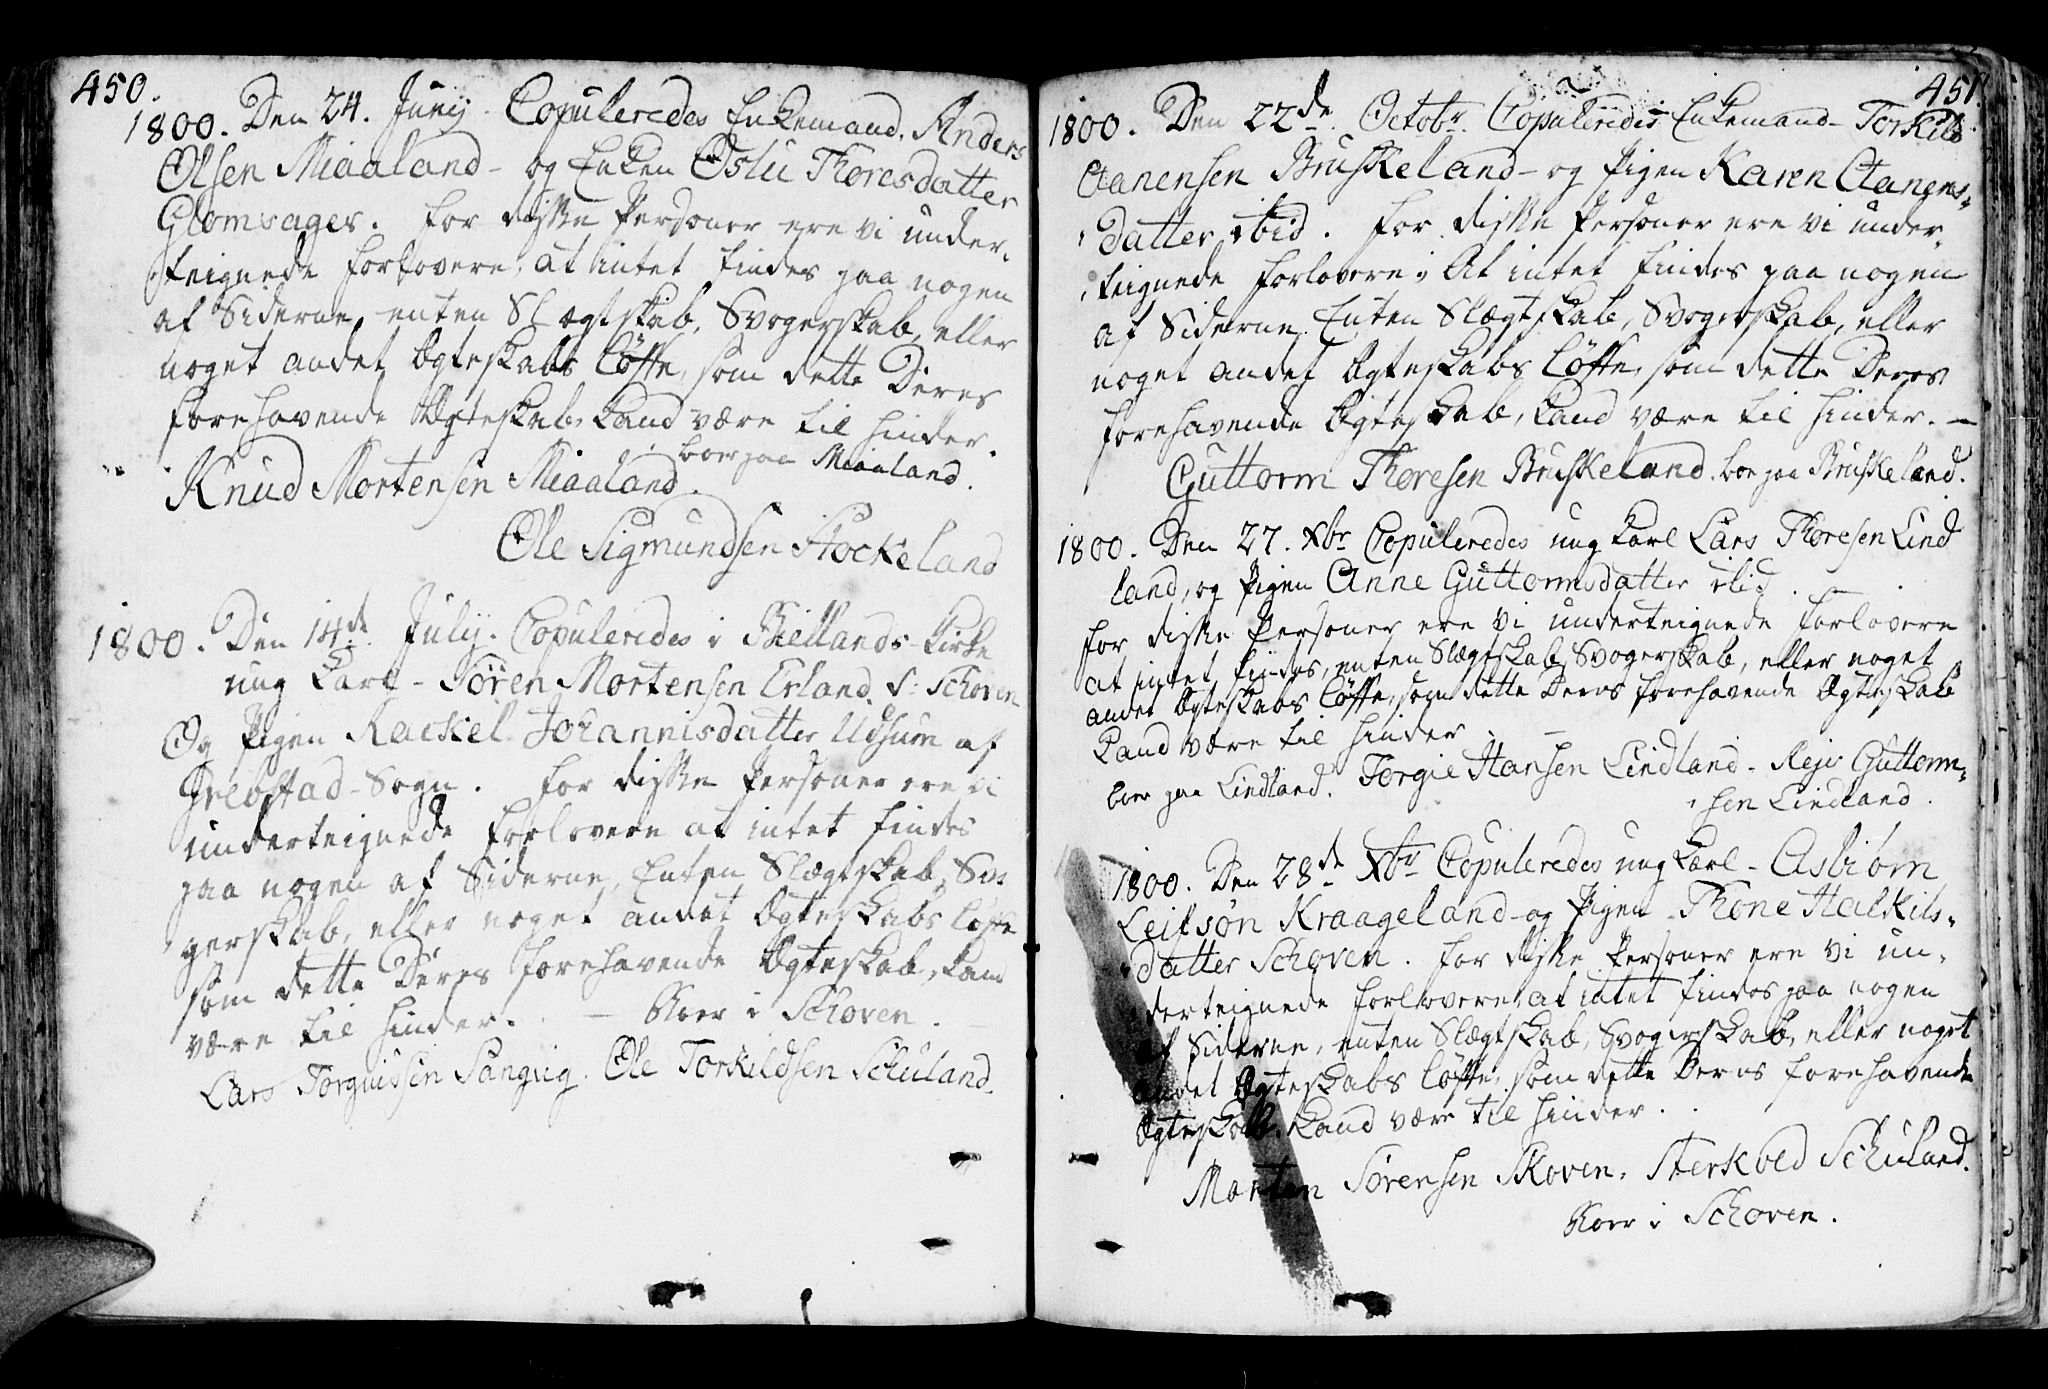 450.
1800. Den 24. Junij. Copuleredes Enkemand. Anders
Olsen Miaaland - og Enken Oslu Thoresdatter
Glomsager. For diske Personer ere vi under-
teignede forlovere, at intet findes paa nogen
af Siderne, enten Slægtskab, Svogerskab, eller
noget andet Ægteskabs Løffte, som dette Deres
forehavende Ægteskab, kand være til hinder.
boer paa Miaaland.
Knud Mortensen Miaaland.
Ole Sigmundsen Stockeland
1800. Den 14de July. Copuleredes i Kirke
ung Karl - Søren Mortensen Erland. S: Schoven
Og Pigen Rackel Johannisdatter Udsum af
Grebstad - Sogn. For diske Personer ere vi
underteignede forlovere at intet findes
paa nogen af Siderne, Enten Slægtskab, Svo-
gerskab, eller noget andet Ægteskabs Løffte
som dette Deres forehavende Ægteskab, kand
være til hinder. - Boer i Schoven.
Lars Torguissen Sangvig. Ole Torkildsen Schuland.
451.
1800. Den 22de Octobr. Copuleredis Enkemand - Torkild
Aanensen Bruskeland - og Pigen Karen Aanens-
datter ibid. For diske Personer ere vi under-
teignede forlovere, At intet findes paa nogen
af Siderne. Enten Slægtskab, Svogerskab, eller
noget andet Ægteskabs Løffte, som dette Deres
forehavende Ægteskab, kand være til hinder. -
Guttorm Thoresen Bruskeland. boe paa Bruskeland.
1800. Den 27. Xbr Copuleredes ung Karl Lars Thoresen Lind
land, og Pigen Anne Guttormsdatter ibid.
for diske Personer ere vi underteignede forlovere
at intet findes, enten Slægtskab, Svogerskab, eller noget
andet Ægteskabs Løffte, som dette Deres forehavende Ægteskab
kand være til hinder. -
boer paa Lindland. Torgie Hansen Lindland - Rejer Guttorm-
sen Lindland.
1800. Den 28de Xbr Copuleredes ung Karl - Asbiørn
Leifsøn Kraageland - og Pigen - Thone Halkils-
datter Schoven. for diske Personer ere vi un-
derteignede forlovere, at intet findes paa nogen
af Siderne, enten Slægtskab, Svogerskab, eller noget
andet Ægteskabs Løffte, som dette Deres forehavende
Ægteskab. kand være til hinder.
Morten Sørensen Skoven. Sterkoed Schuland.
Boer i Schoven.